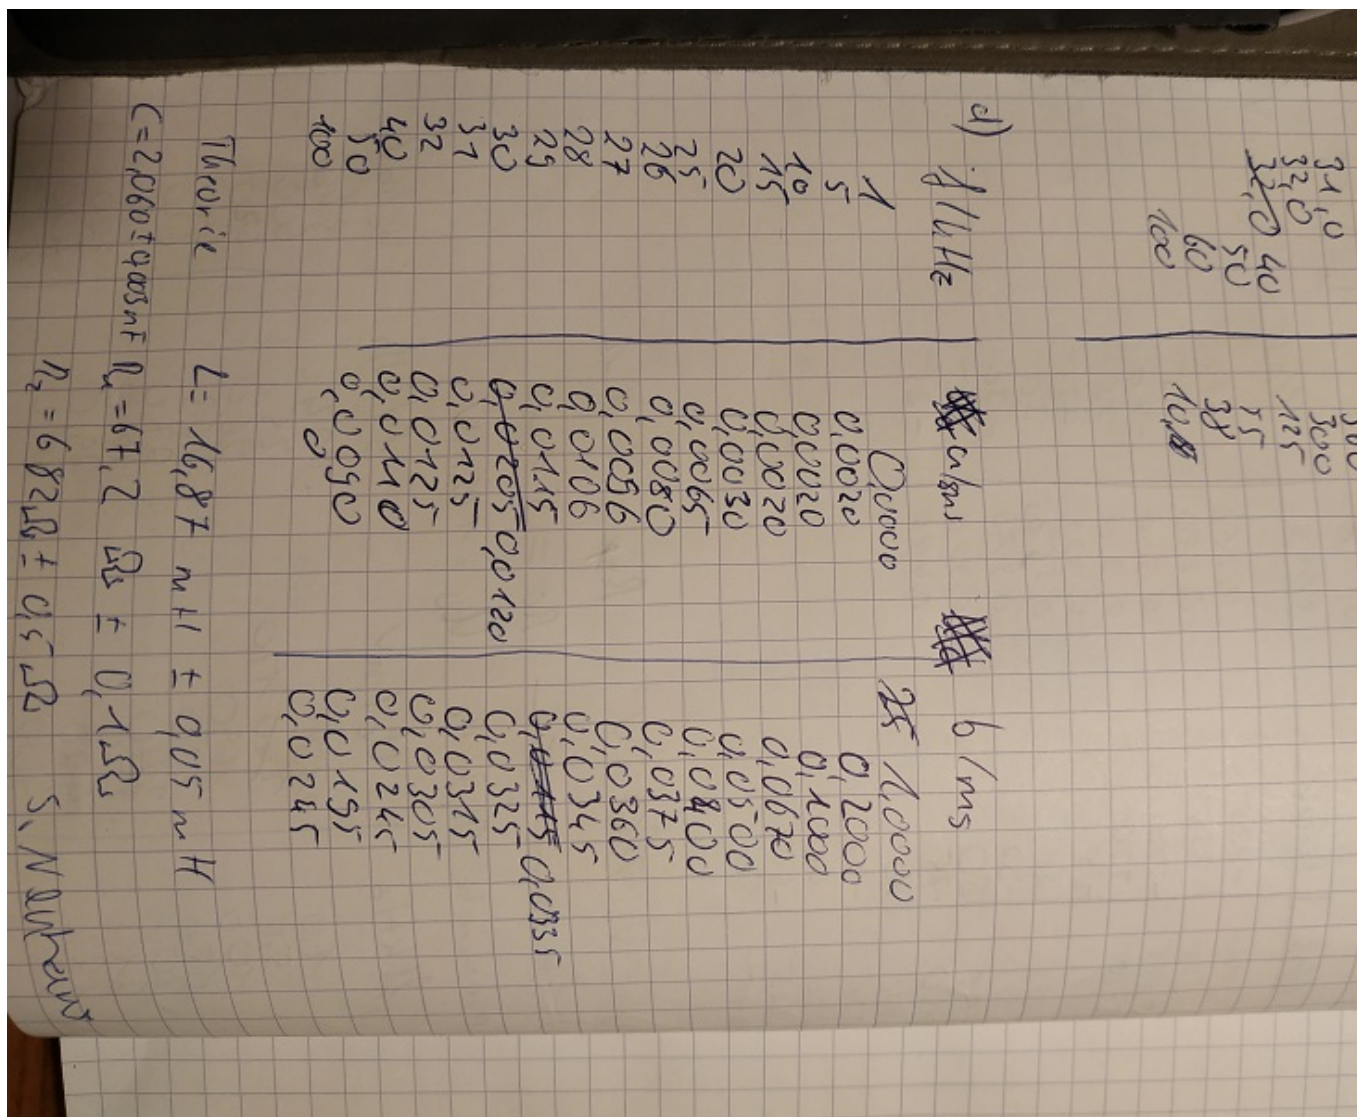 31,0
32,0 300
40 125
50 75
60 38
100
d) f/kHz a/ms b/ms
1 0,0000 1,0000
5 0,0020 0,2000
10 0,0020 0,1000
15 0,0020 0,0670
20 0,0030 0,0500
25 0,0065 0,0400
26 0,0080 0,0375
27 0,0096 0,0360
28 0,0106 0,0345
29 0,0115 0,0335
30 0,0205 0,0120 0,0325
31 0,0125 0,0315
32 0,0125 0,0305
40 0,0110 0,0245
50 0,0090 0,0195
100 0 0,0245
Theorie L = 16,87 mH ± 0,05 mH
C = 2,060 ± 0,005 nF R₁ = 67,2 Ω ± 0,1 Ω
R₂ = 682 Ω ± 0,5 Ω